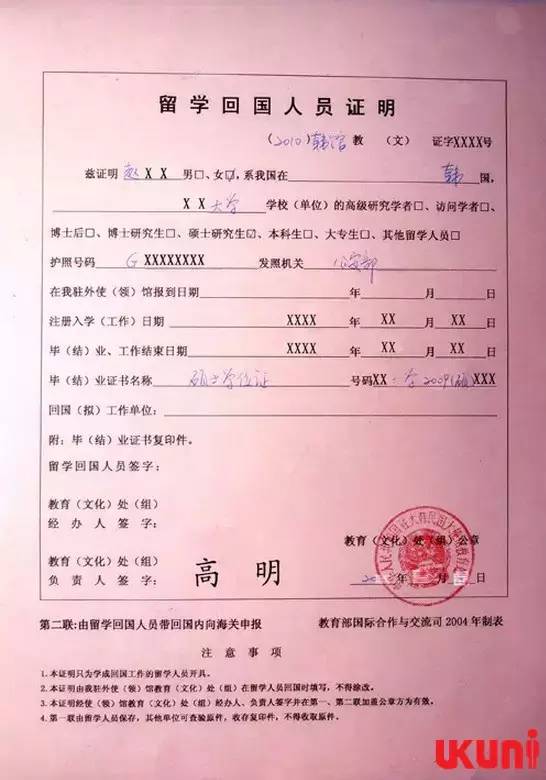 留学回国人员证明
(2010)韩馆 教 (文) 证字XXXX号
兹证明 赵XX 男□、女☑, 系我国在 韩 国,
XX大学 学校(单位)的高级研究学者□、访问学者□、
博士后□、博士研究生□、硕士研究生☑、本科生□、大专生□、其他留学人员□
护照号码 G XXXXXXXX 发照机关 公安部
在我驻外使(领)馆报到日期 年 月 日
注册入学(工作)日期 XXXX 年 XX 月 XX 日
毕(结)业、工作结束日期 XXXX 年 XX 月 XX 日
毕(结)业证书名称 硕士学位证 号码XX:学2009(硕)XXX
回国(拟)工作单位:
附:毕(结)业证书复印件。
留学回国人员签字:
教育(文化)处(组)
经办人签字:
教育(文化)处(组)公章
教育(文化)处(组)
负责人签字: 高明
年 月 日
第二联:由留学回国人员带回国内向海关申报 教育部国际合作与交流司2004年制表
注意事项
1.本证明只为学成回国工作的留学人员开具。
2.本证明由我驻外使(领)馆教育(文化)处(组)在留学人员回国时填写,不得涂改。
3.本证明经使(领)馆教育(文化)处(组)经办人、负责人签字并在第一、第二联加盖公章方为有效。
4.第一联由留学人员保存,其他单位可查验原件,收存复印件,不得收取原件。
UKUNI